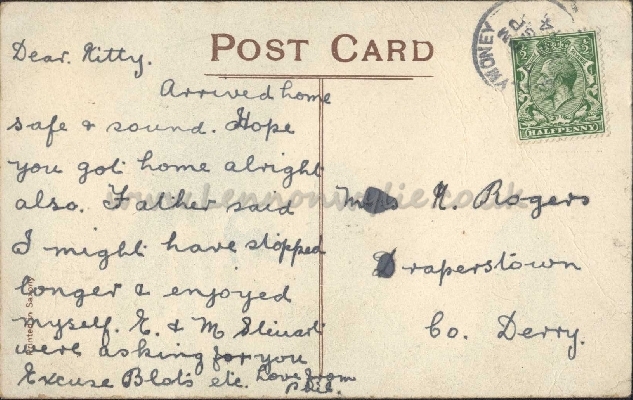 POST CARD
YMONEY
HALFPENNY
Dear Kitty.
Arrived home
safe & sound. Hope
you got home alright
also. Father said
I might have stopped
longer & enjoyed
myself. E. & M Steuart
were asking for you
Excuse Blots etc. Love from
Phil.
K. Rogers
Draperstown
Co. Derry.
Printed in Saxony